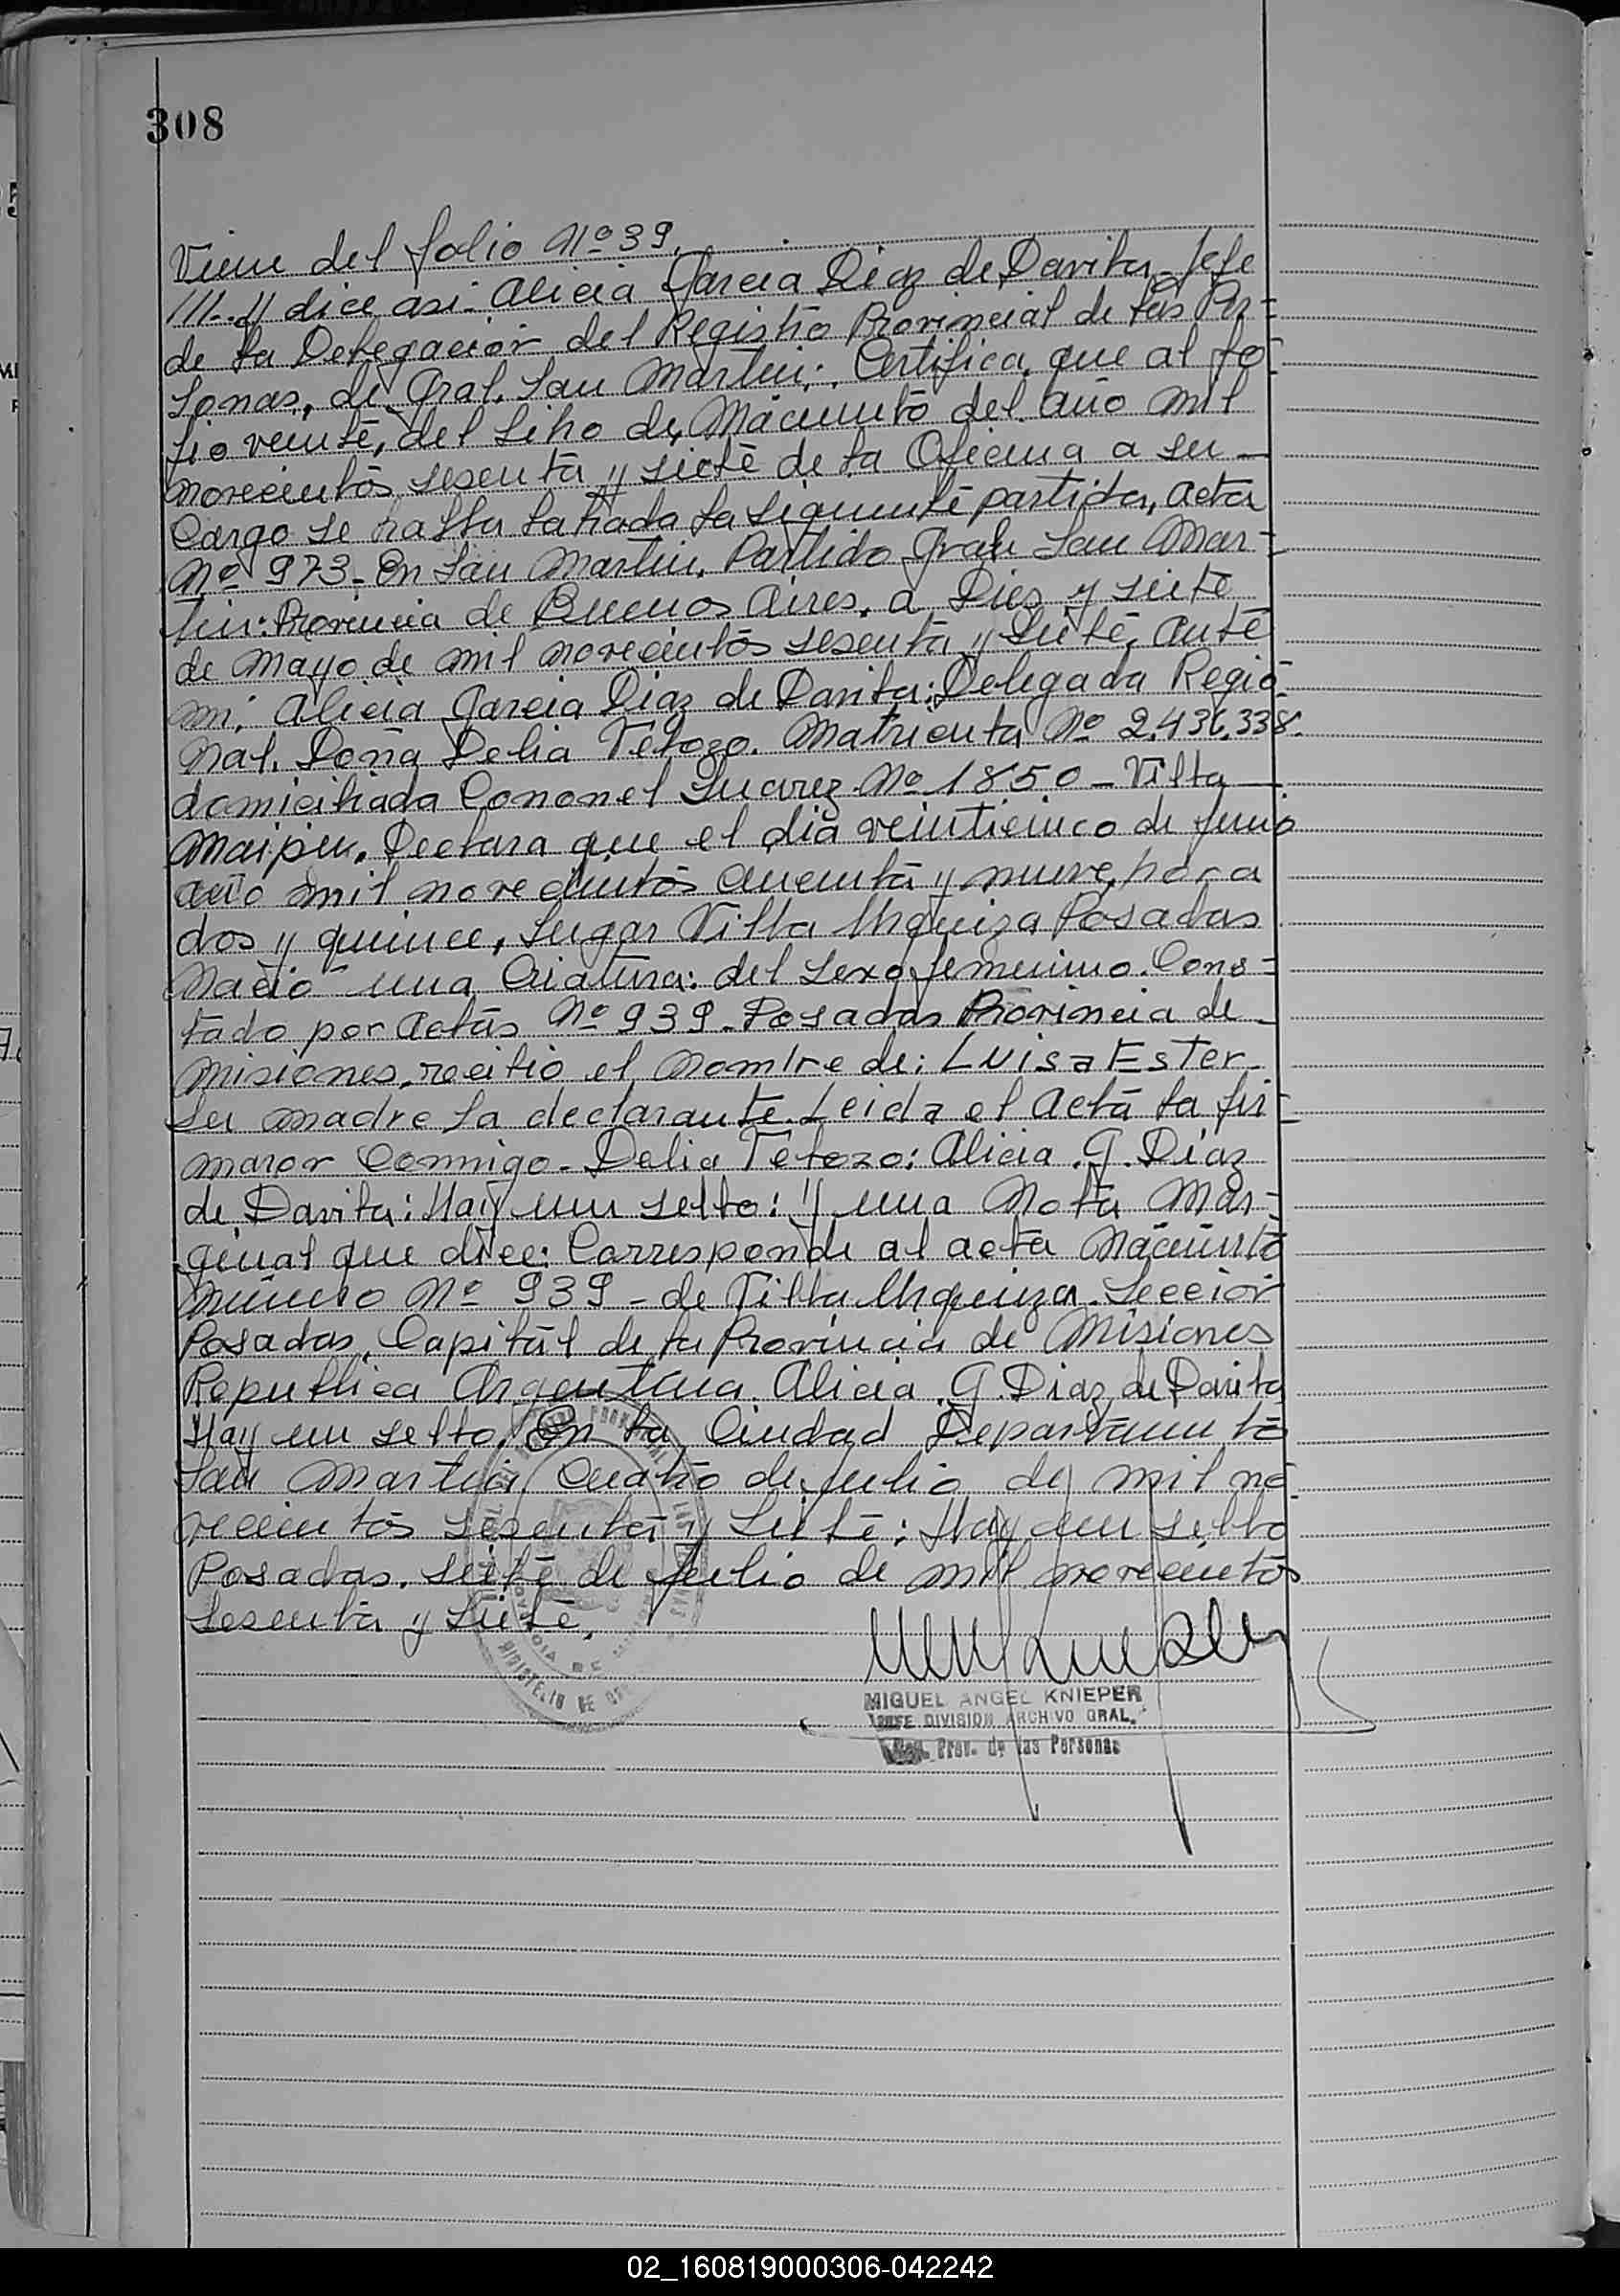 308
Viene del folio Nº 39.
///..y dice asi- Alicia Garcia Diaz de Davita, Jefe
de la Delegacion del Registro Provincial de las Per=
sonas, de Gral. San Martin:. Certifica que al fo-
lio veinte, del libro de, Nacimiento del año mil
novecientos sesenta y siete de la Oficina a su -
Cargo se halla labrada la siguiente partida, acta
Nº 973- En San Martin, Partido Gral. San Mar-
tin: Provincia de Buenos Aires, a Diez y siete
de Mayo de mil novecientos sesenta y siete, ante
mi, Alicia Garcia Diaz de Davita: Delegada Regio-
nal. Doña Delia Velozo. Matricula Nº 2.436.338.
domiciliada Coronel Suarez Nº 1850 - Villa
Maipu. Declara que el dia veinticinco de Junio
año mil novecientos cuarenta y nueve, hora
dos y quince, Lugar Villa Urquiza Posadas
Nació una Criatura: del sexo femenino. Cons=
tado por Actas Nº 939- Posadas Provincia de -
Misiones, recibio el nombre de: Luisa Ester-
Su madre la declarante. Leida el Acta la fir-
maron Conmigo- Delia Velozo: Alicia .G. Diaz
de Davita: Hay un sello: y una Nota Mar=
ginal que dice: Corresponde al acta Nacimiento
número Nº 939 - de Villa Urquiza. Seccion
Posadas, Capital de la Provincia de Misiones
Republica Argentina. Alicia .G. Diaz de Davita
Hay un sello. En la Ciudad Departamento
San Martin, Cuatro de Julio de mil no-
vecientos sesenta y siete: Hay un sello
Posadas. siete de Julio de mil novecientos
sesenta y siete.
MIGUEL ANGEL KNIEPER
JEFE DIVISION ARCHIVO GRAL.
Reg. Prov. de las Personas
02_160819000306-042242